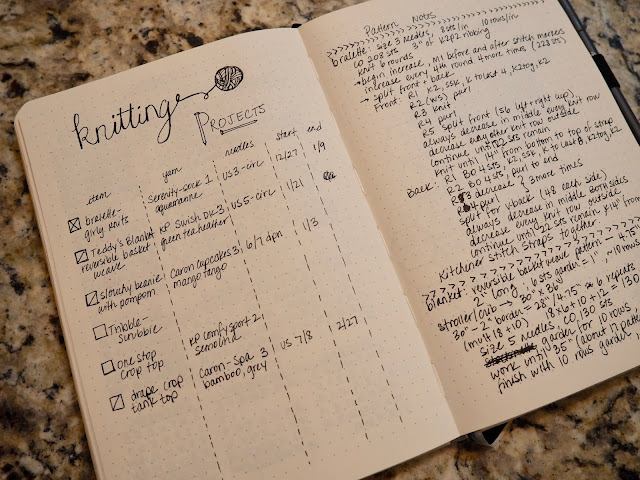 knitting
Projects
item yarn needles start end
bralette- girly knits
serenity-sock 1 aquamarine
US 3-circ
12/27
1/9
Teddy's Blanket reversible basket weave
KP Swish DK 3 green tea heather
US 5-circ
1/21
slouchy beanie with pompom
Caron cupcakes 3 mango tango
6/7 dpn
1/3
Tribble- scrubbie
One stop crop top
KP comfy sport 2 semolina
drape crop tank top
Caron-Spa 3 bamboo, grey
US-7/8
2/27
Pattern Notes
bralette: size 3 needles, 8sts/in 10 rows/in
CO 208 sts 3" of K2P2 ribbing
knit 6 rounds
begin increase, M1 before and after stitch markers
increase every 4th round 4 more times (228 sts)
split front + back
Front: R1 K2, SSK, K to last 4, K2tog, K2
R2 (WS) purl
R3 knit
R4 purl
R5 split front (56 left + right up),
always decrease in middle every knit row
decrease every other knit row outside
continue until 22 sts remain
knit until 14" from bottom to top of strap
Back: R1 BO 4 sts, K2, SSK, K to last 8, K2tog, K2
R2 BO 4 sts, purl to end
R3 decrease } 3 more times
R4 purl
split for back (48 each side)
always decrease in middle
decrease every knit row outside
continue until 22 sts remain
Kitchener stitch straps together
blanket: reversible basket weave pattern - 4.75"
2" long, 6 sts garden = 1" ~10 rows
stroller/cub → 30" x 36"
30" - 2" border = 28"/4.75" ≈ 6 repeats
(mult 18 + 10) 18×6+10+12 = 130
size 5 needles, CO 130 sts
garder for 10 rows
work until 35" (about 17 patterns)
finish with 10 rows garder